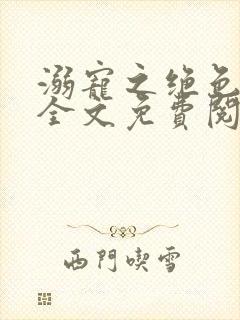 溺寵之绝色
全文免費閱
西門喫雪